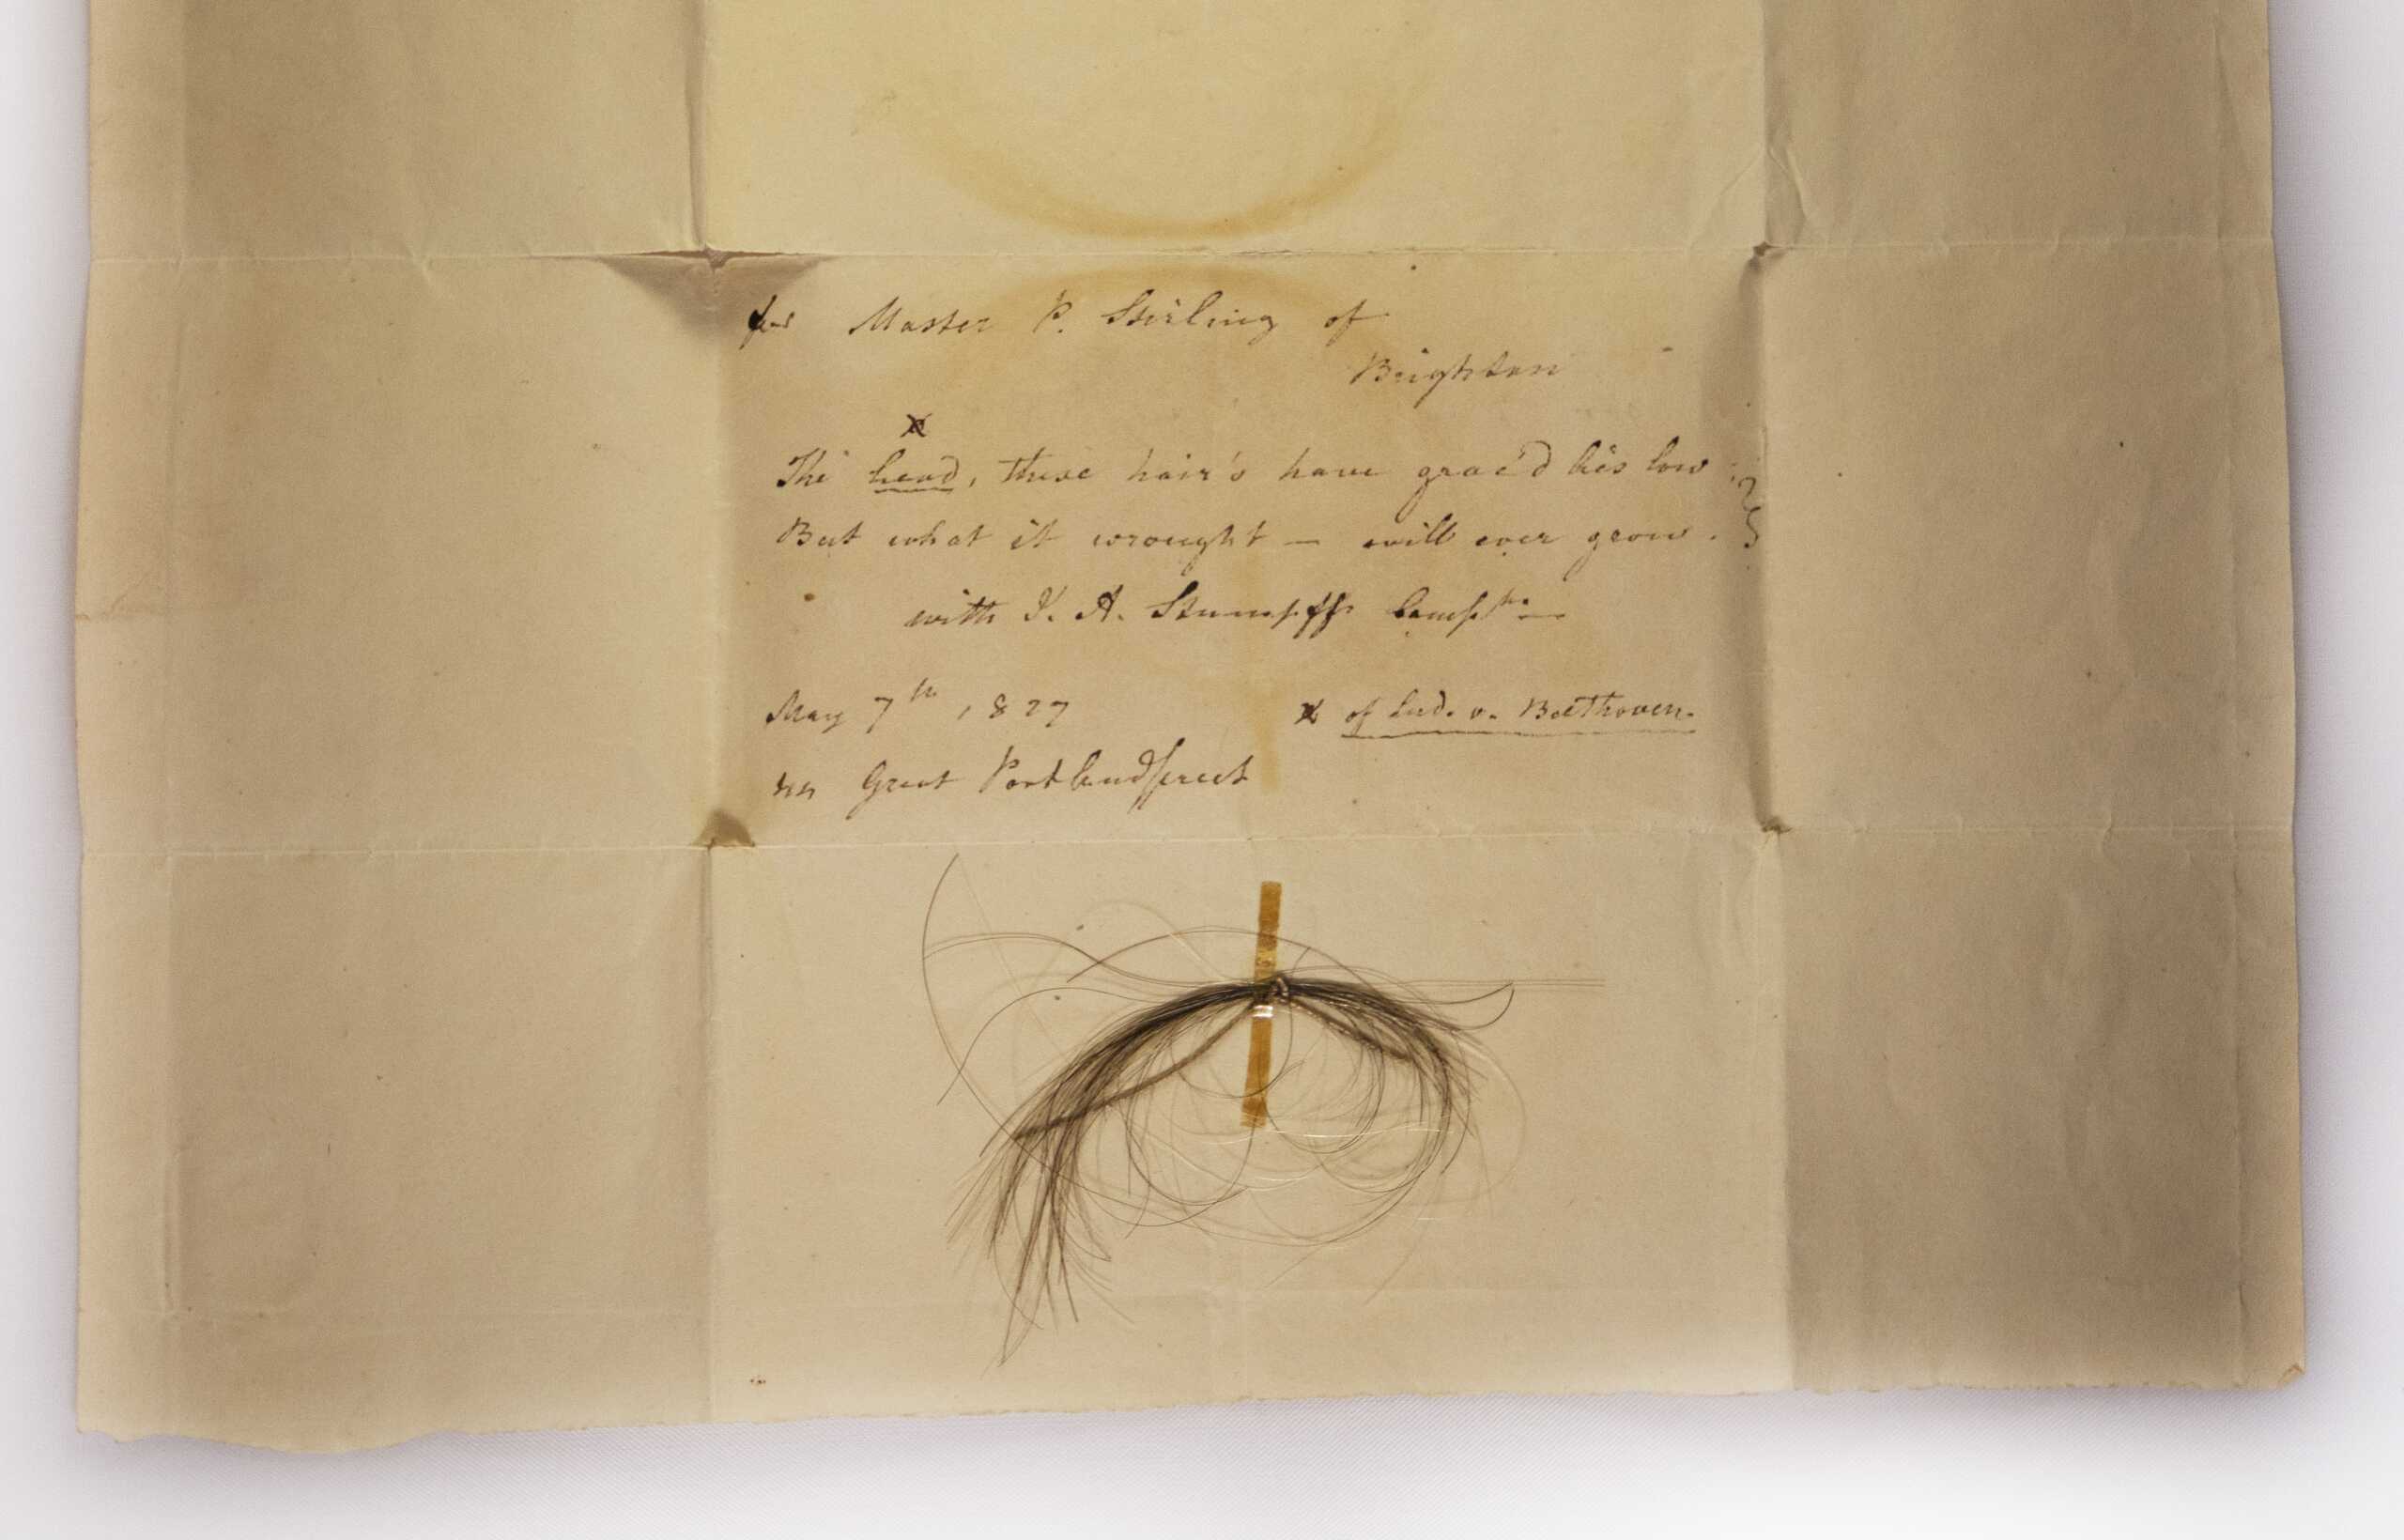 for Master P. Stirling of
Brighton
x
The head, these hair's have grac'd lies low;
But what it wrought — will ever grow.
with J. A. Stumpff Comp.ts —
May 7th, 1827
x of Lud. v. Beethoven.
44 Great Portlandstreet